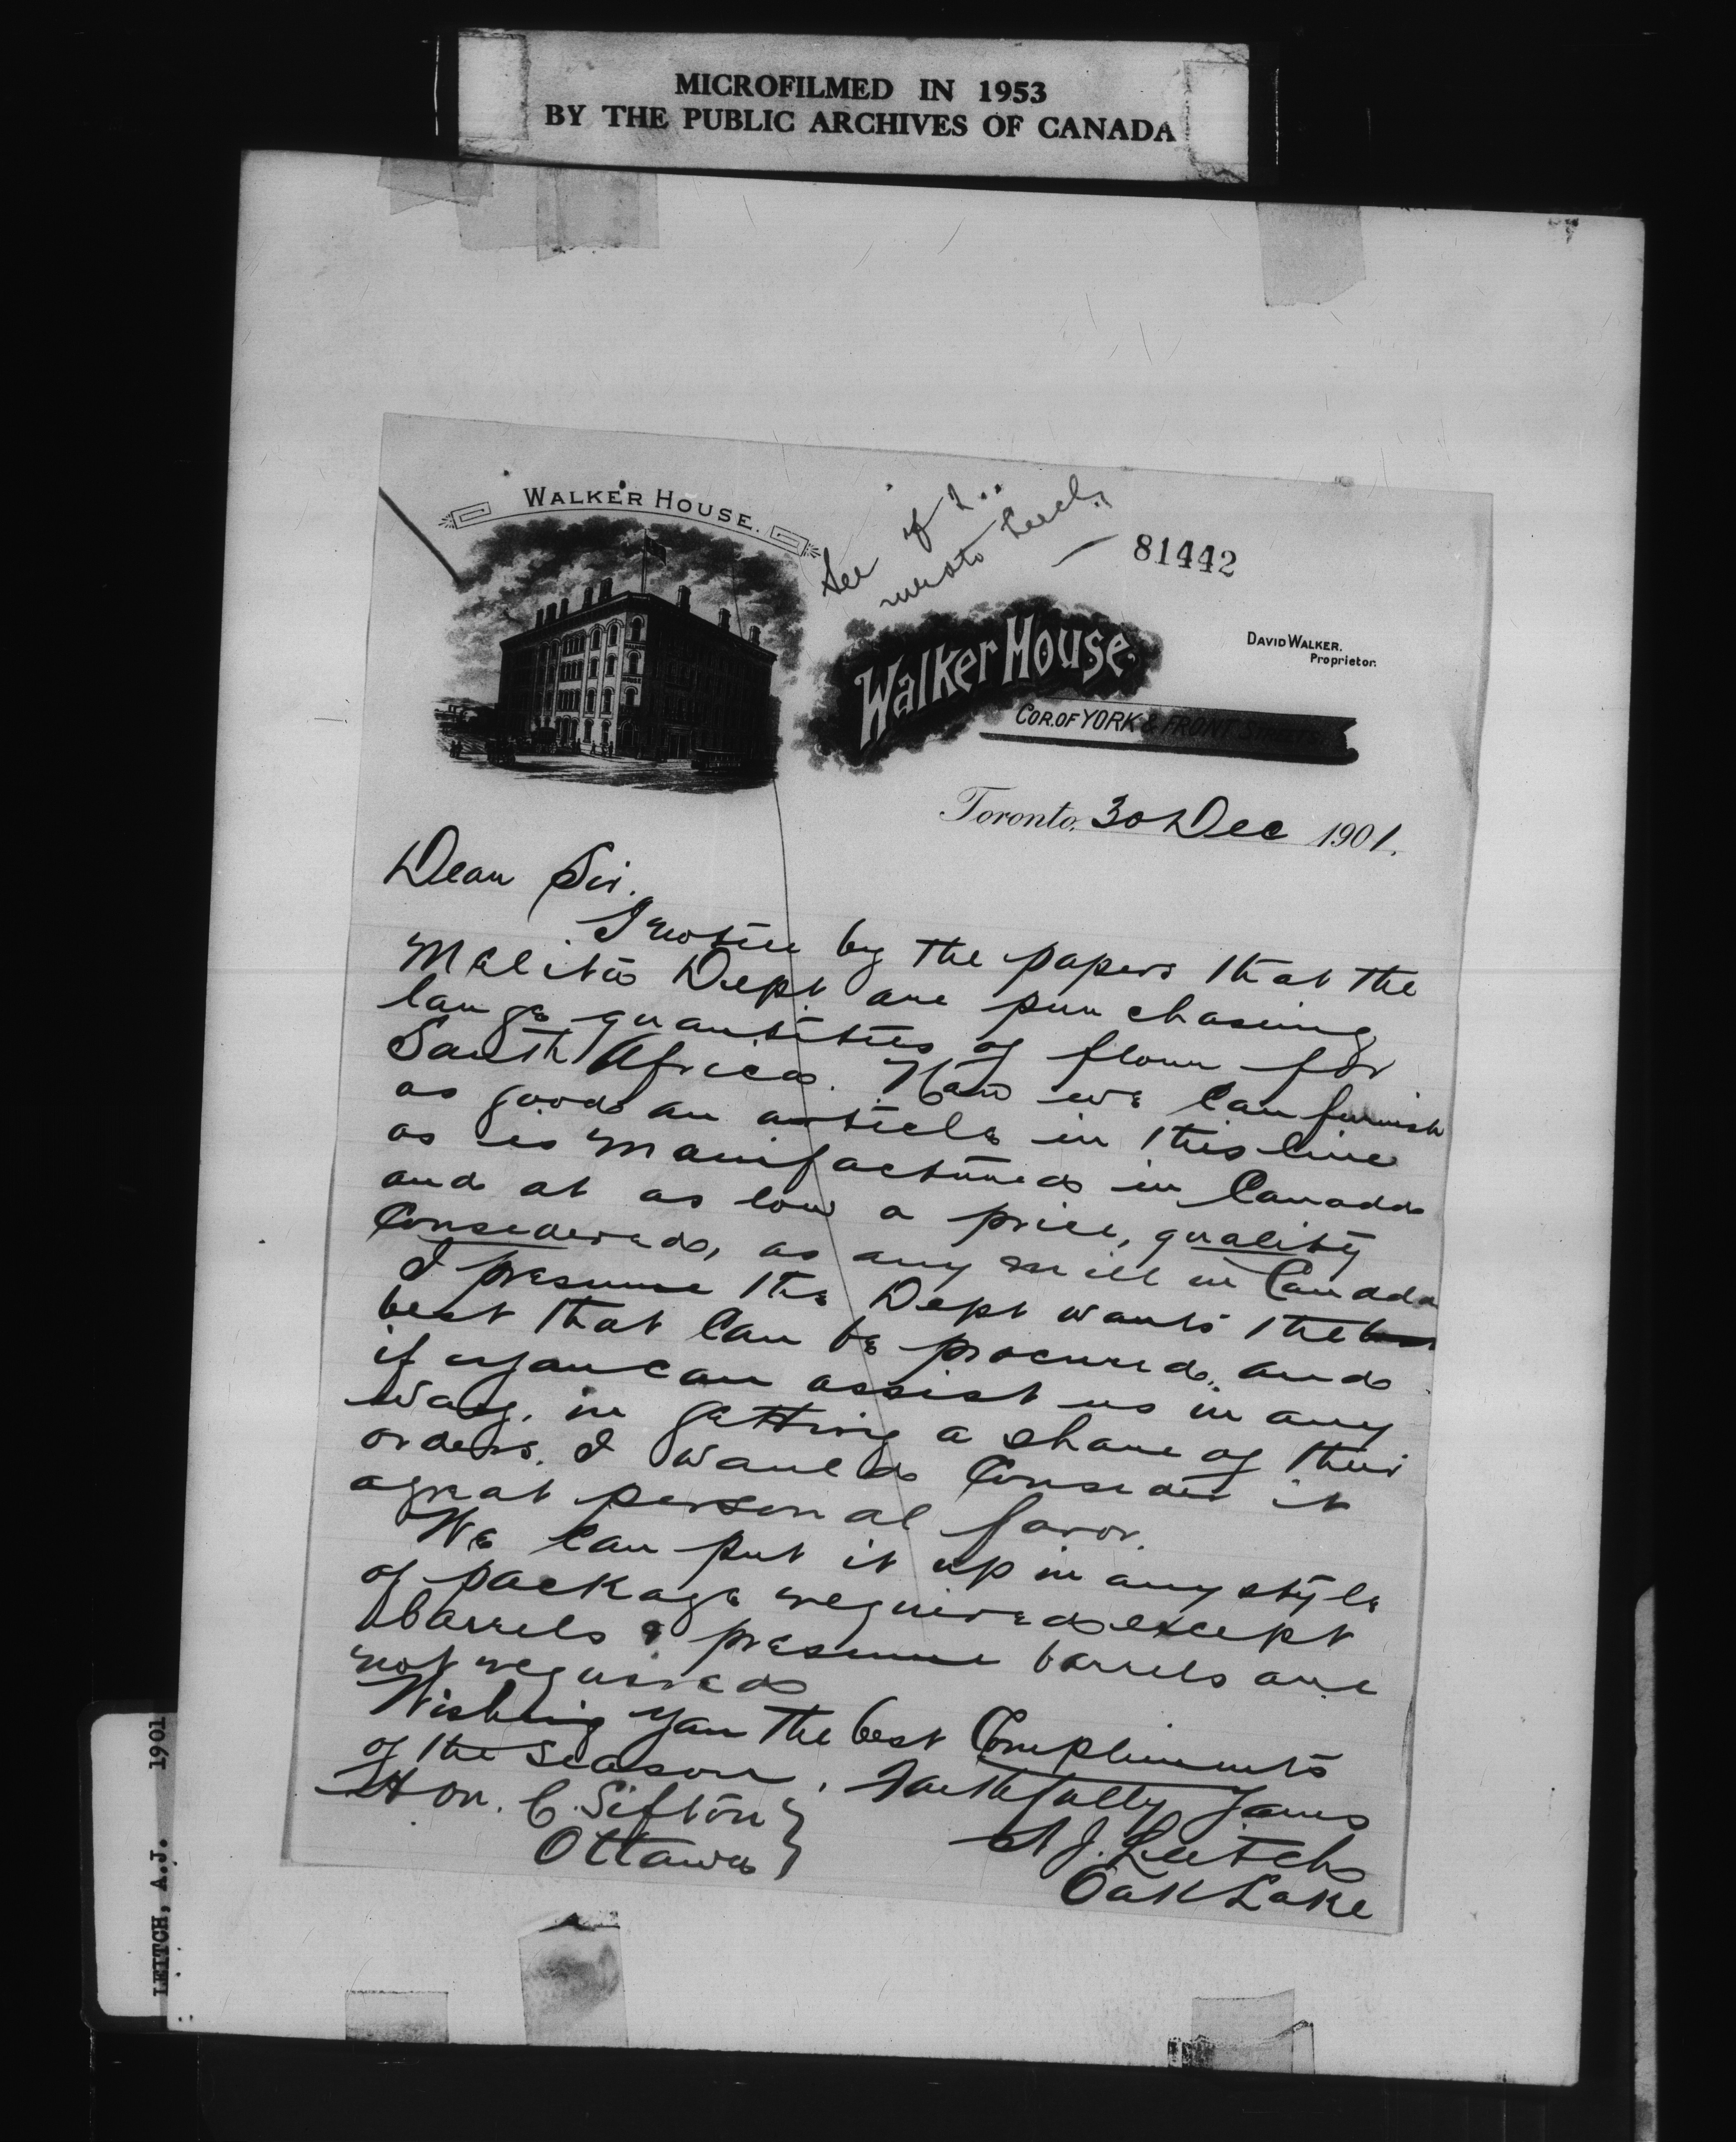 MICROFILMED IN 1953
BY THE PUBLIC ARCHIVES OF CANADA
WALKER HOUSE.
See if I
wrote
81442
Walker House.
DAVID WALKER.
Proprietor.
COR. OF YORK & FRONT STREETS.
Toronto, 30 Dec 1901.
Dear Sir.
I notice by the papers that the
Militia Dept are purchasing
large quantities of flour for
South Africa. Now we can furnish
as good an article in this line
as is manufactured in Canada
and at as low a price, quality
Considered, as any mill in Canada
I presume the Dept wants the
best that can be procured, and
if you can assist us in any
way, in getting a share of their
orders. I would Consider it
a great personal favor.
We can put it up in any style
of package required except
barrels & presume barrels are
not required
Wishing you the best Compliments
of the season. Faithfully Yours
Hon. C. Sifton }
Ottawa }
A J. Leitch
Oak Lake
LEITCH, A.J. 1901